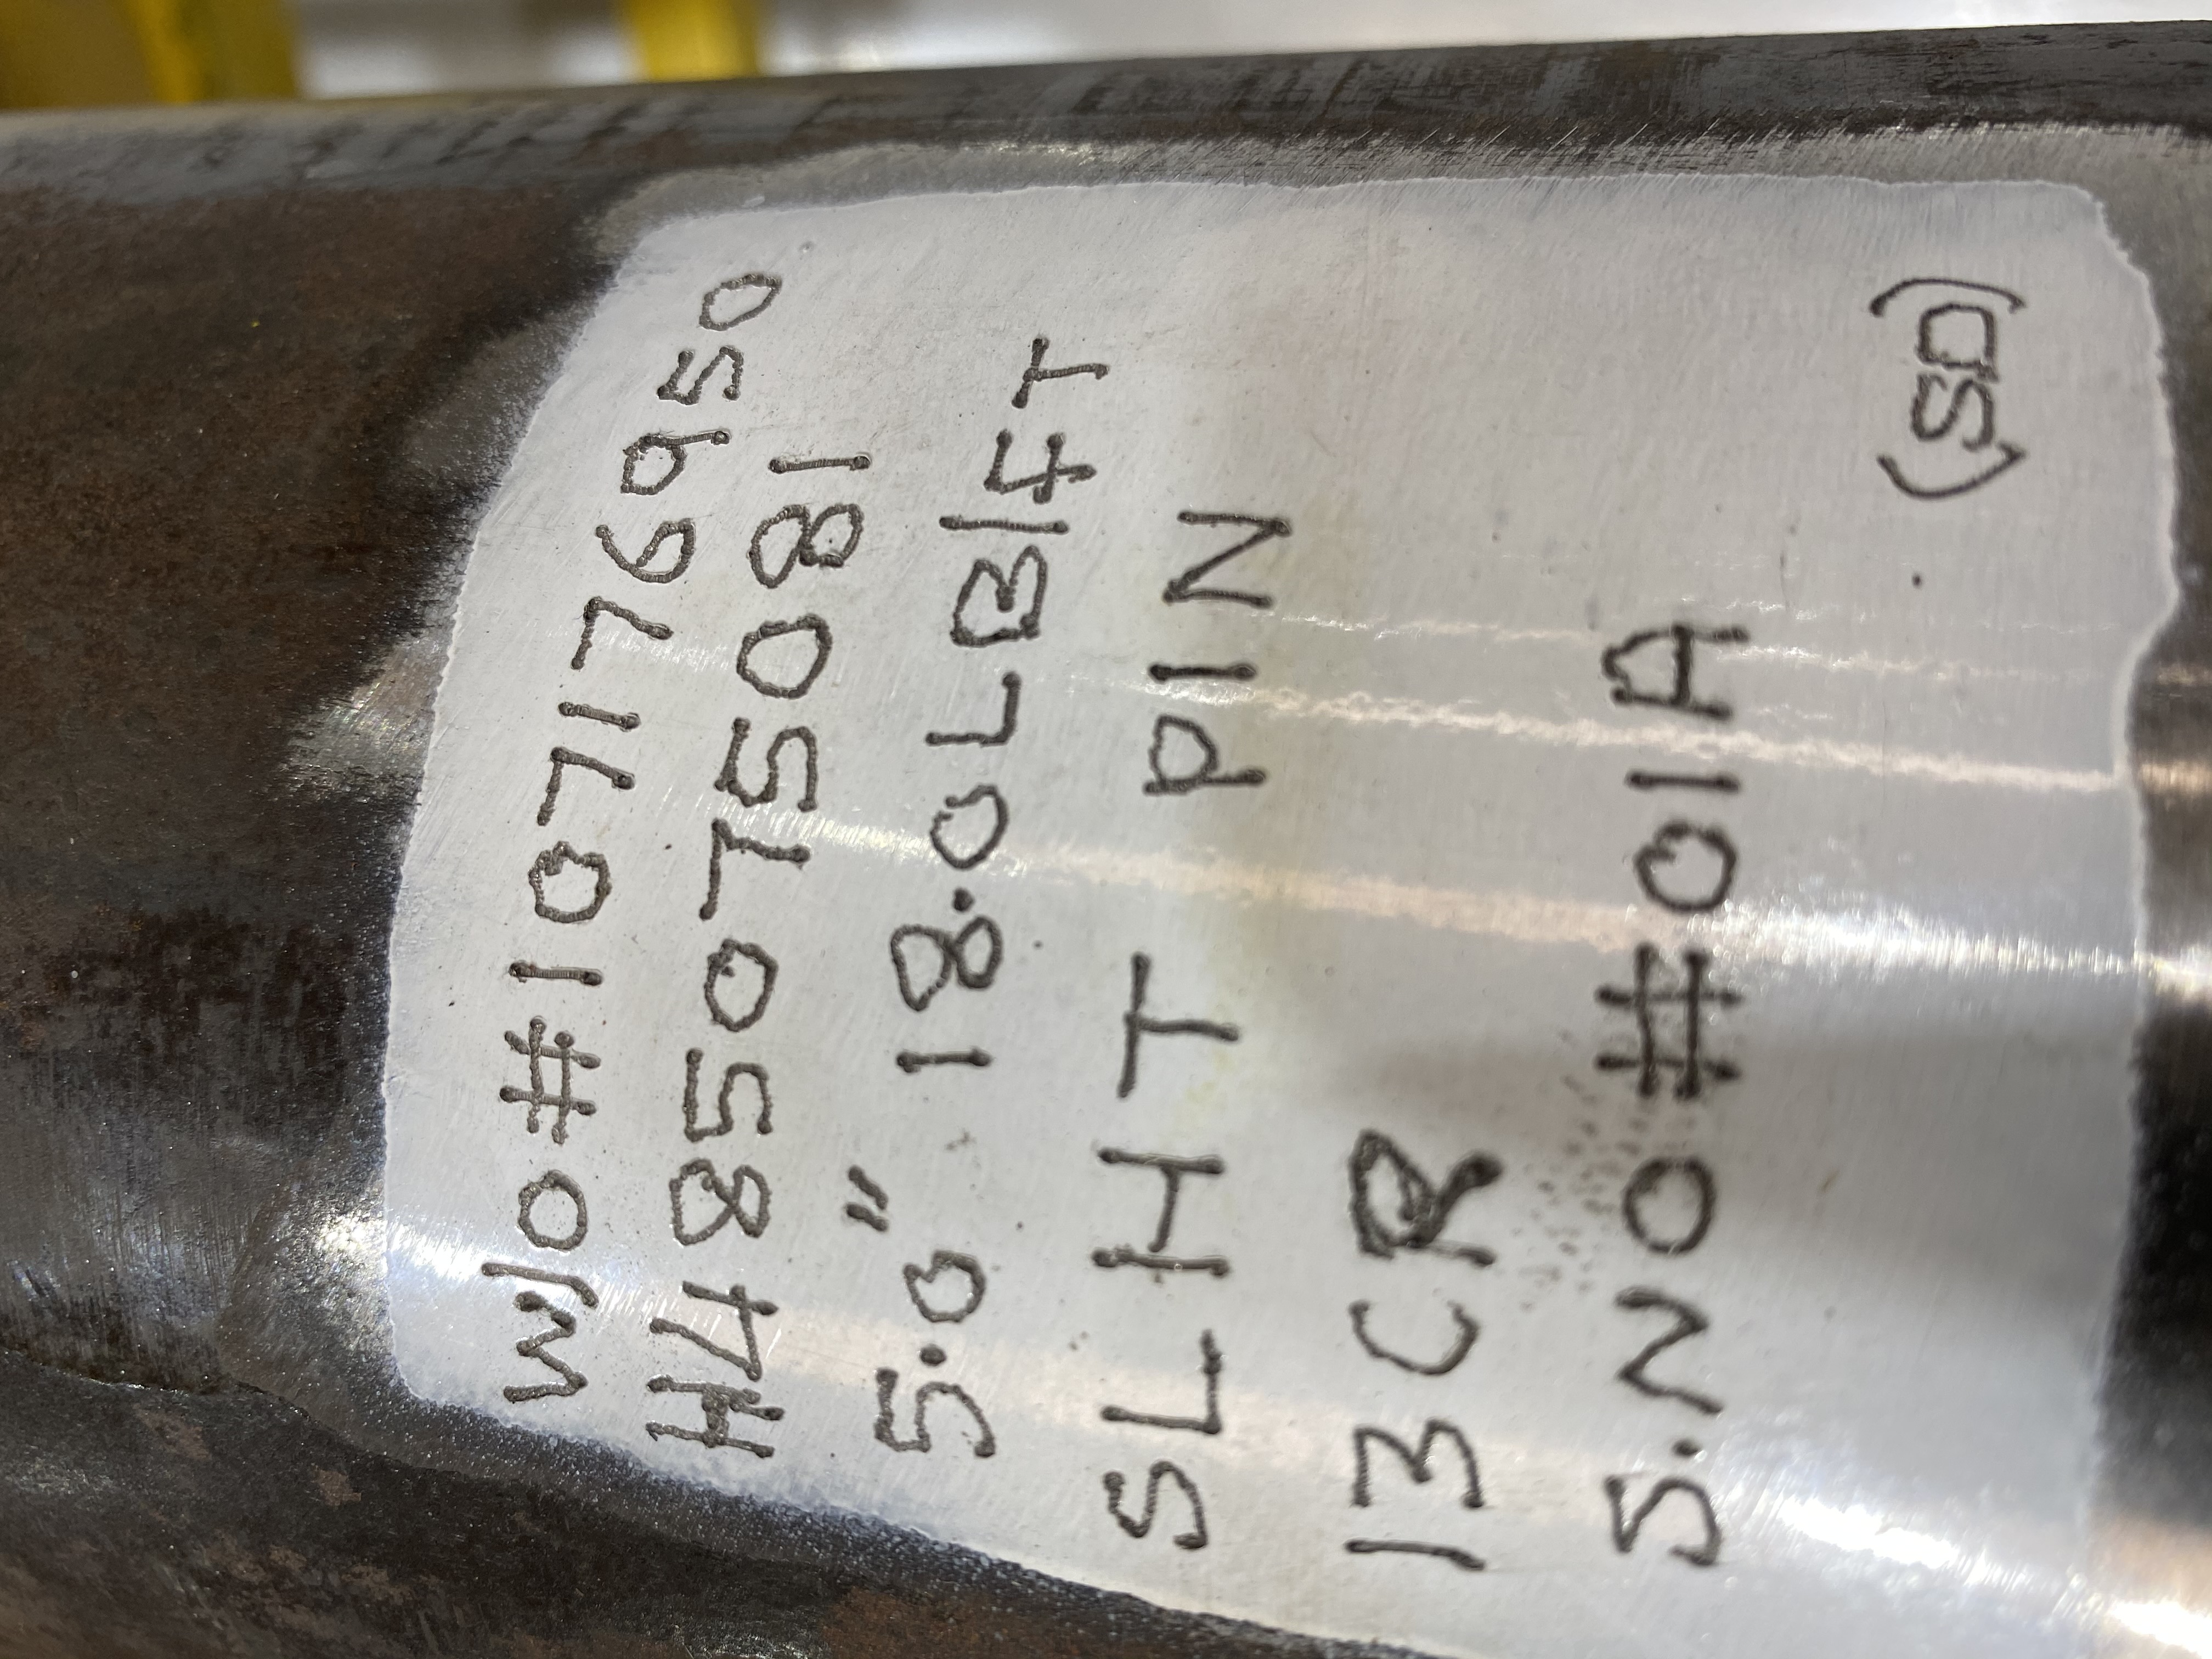 W/O #107176950
H485075081
5.0" 18.0LB/FT
SLHT PIN
13CR
S.NO #01A
(SD)